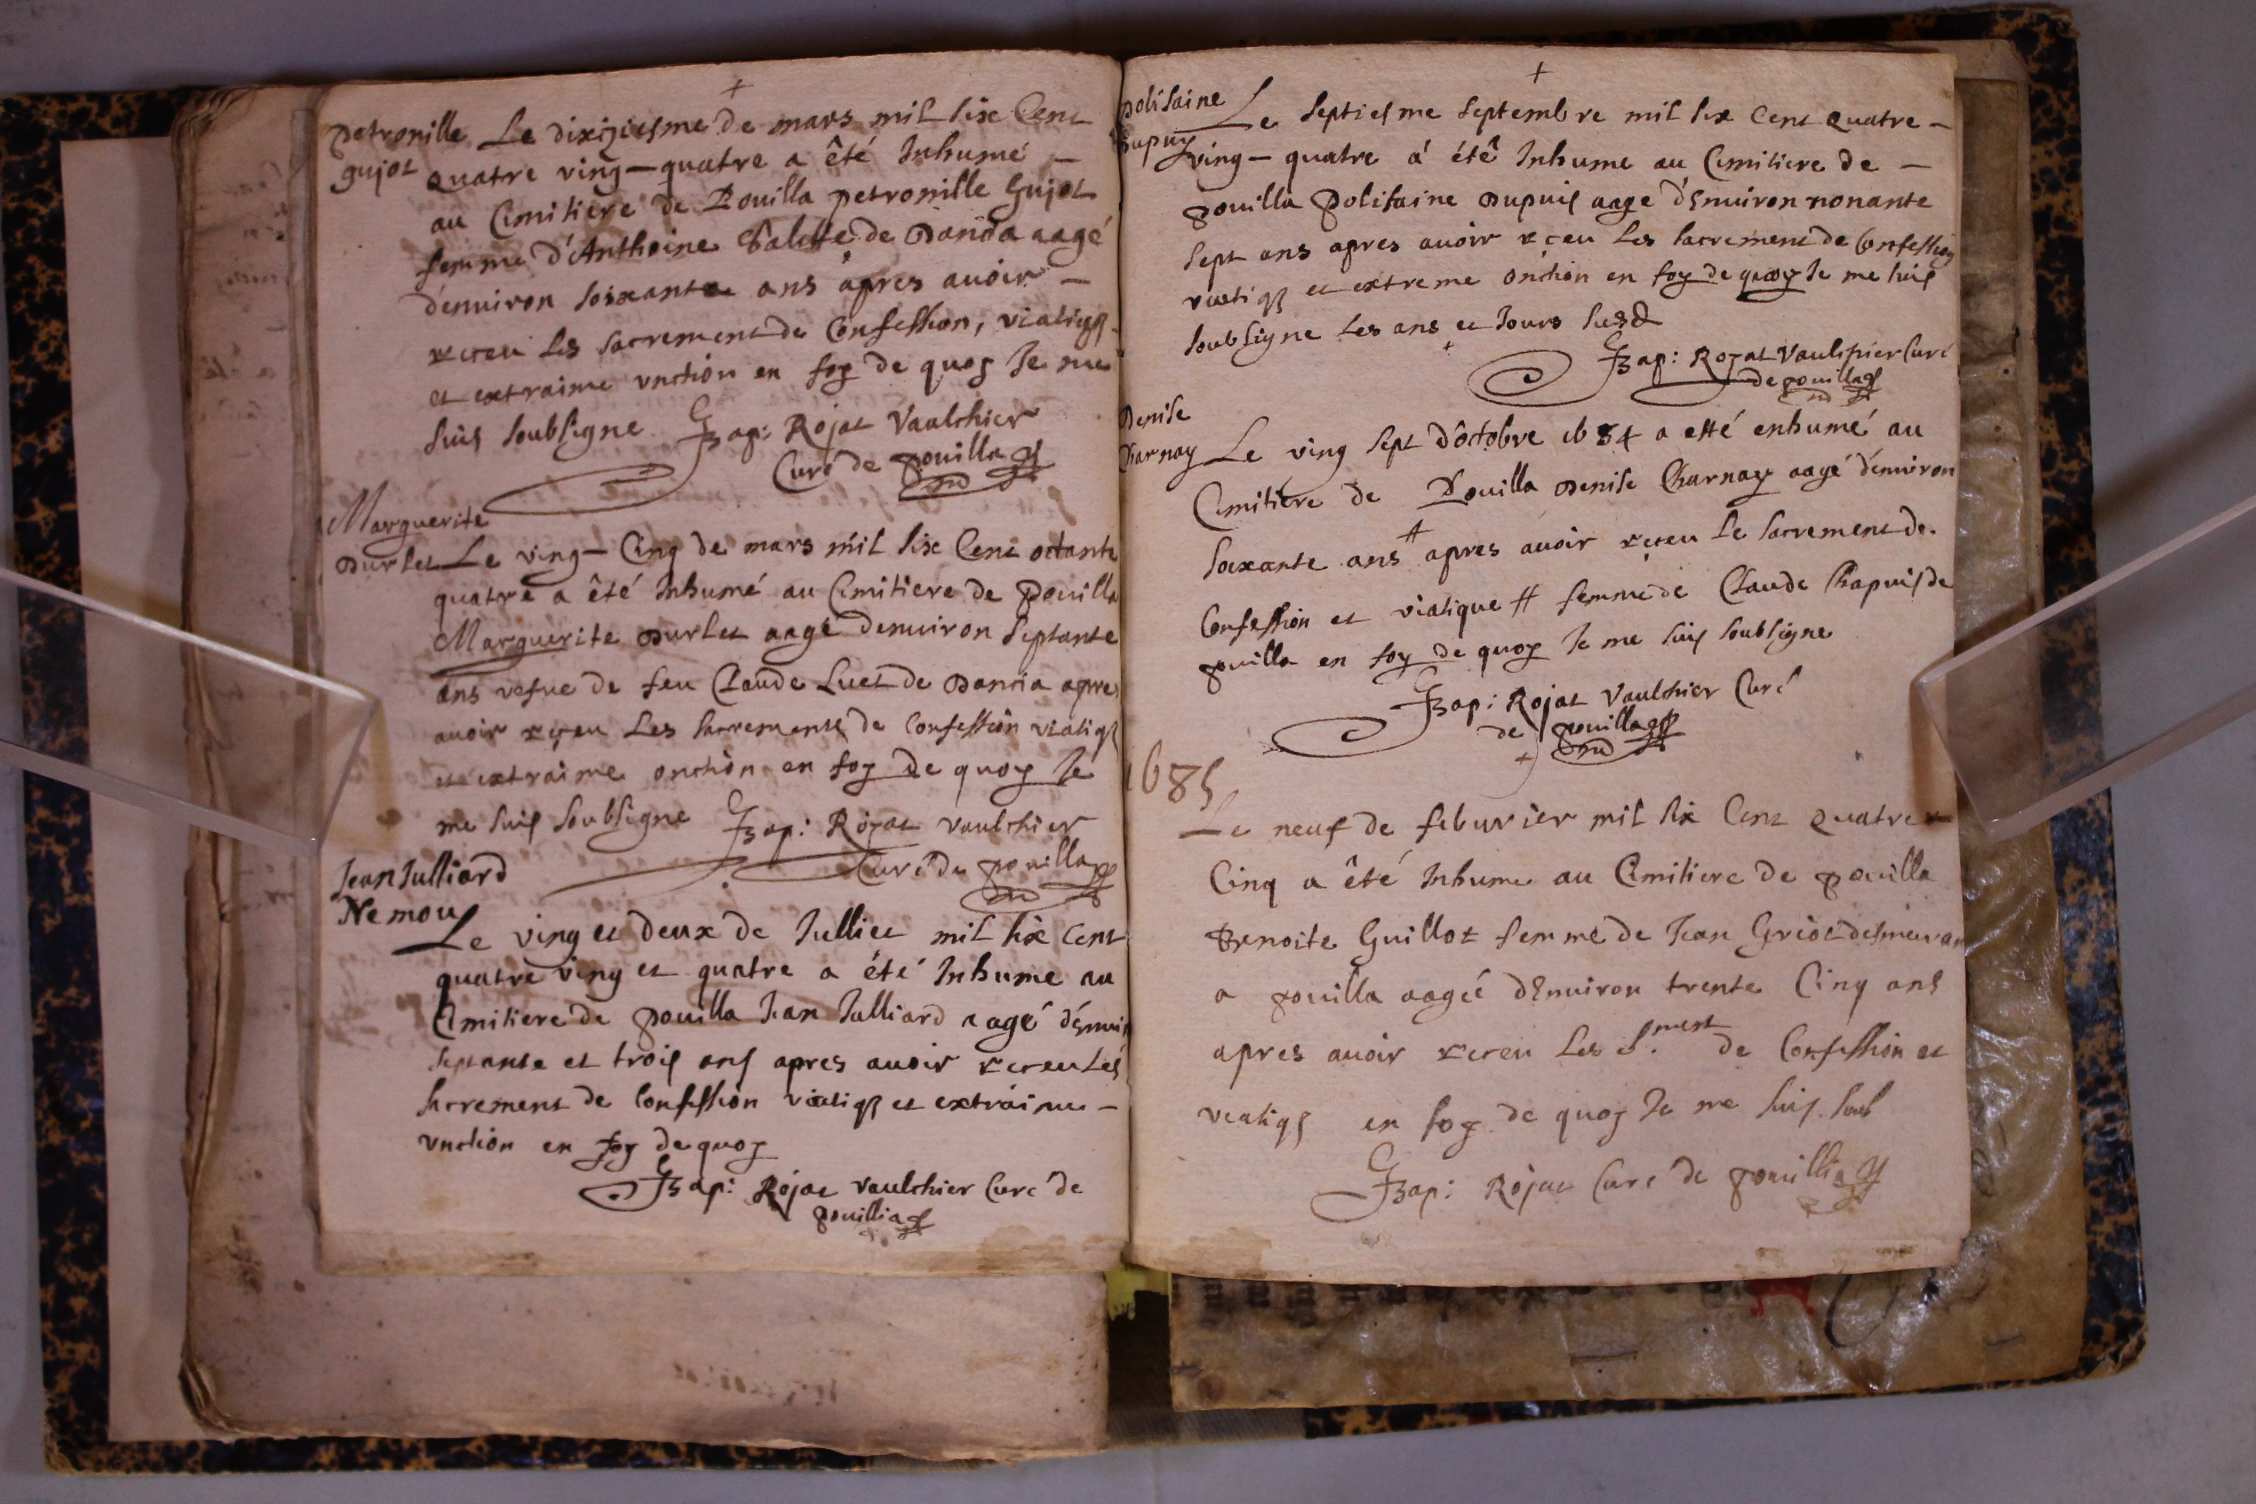 petronille
gujot
Le dixiziesme de mars mil six Cent
quatre ving-quatre a été Inhumé
au Cimitiere de Pouilla petronille Gujot
femme d'Anthoine de Dancia aagé
d'enuiron soixante ans apres auoir
receu les sacrement de Confession, viatiq
et extraime vnction en foy de quoy Je me
suis soubsigne Bap: Rojat Vaulchier
Curé de pouilla
Marguerite
Durlet
Le ving-Cinq de mars mil six Cent octante
quatre a été Inhumé au Cimitiere de Pouilla
Marguerite Durlet aagé denuiron septante
ans vefue de feu Claude Luet de Dancia apres
auoir receu Les sacrements de Confession viatiq
et extraime onction en foy de quoy Je
me suis soubsigne Bap: Rojat vaulchier
Curé de pouilla
Jean Julliard
Nemou
Le ving et deux de Julliet mil six Cent
quatre ving et quatre a été Inhume au
Cimitiere de pouilla Jean Julliard aagé d'énuir
septante et trois ans apres auoir receu Les
sacrement de Confession viatiq et extraime
vnction en foy de quoy
Bap: Rojat vaulchier Curé de
pouillia
polisaine
Dupuy
Le septiesme septembre mil six Cent quatre-
ving-quatre á été Inhume au Cimitiere de
pouilla Polisaine Dupuis aagé d'Enuiron nonante
sept ans apres auoir receu Les sacrement de Confession
viatiq et extreme onction en foy de quoy Je me suis
soubsigne Les ans et Jours susd
Bap: Rojat Vaulchier Curé
de pouilla
Denise
Charnay
Le ving sept d'octobre 1684 a etté enhumé au
Cimitiere de Pouilla Denise Charnay aagé d'enuiron
soixante ans # apres auoir receu Le sacrement de
Confession et viatique # femme de Claude Chapuis de
pouilla en foy de quoy Je me suis soubsigne
Bap: Rojat Vaulchier Curé
de pouilla
1685
Le neuf de feburier mil six Cent quatre
Cinq a été Inhume au Cimitiere de pouilla
Benoite Guillot femme de Jean Griot
a pouilla aagéé d'Enuiron trente Cinq ans
apres auoir receu Les S.ment de Confession et
viatiq en foy de quoy Je me suis soub
Bap: Rojat Curé de pouillia